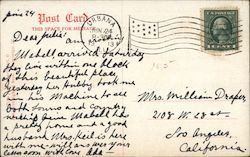 June 24
Post Card
THIS SPACE FOR MESSAGE
URBANA
JUN 24
Dear
arrived Saturday
they live within one block
of this beautiful place
Yesterday her Hubby took me
in his Machine to see
both towns and country
Mabell has
a pretty home and a good
husband. Mrs Keil is here
with me, will answer your
soon with love
Mrs. William Draper
2108 W. 28 st
Los Angeles,
California.